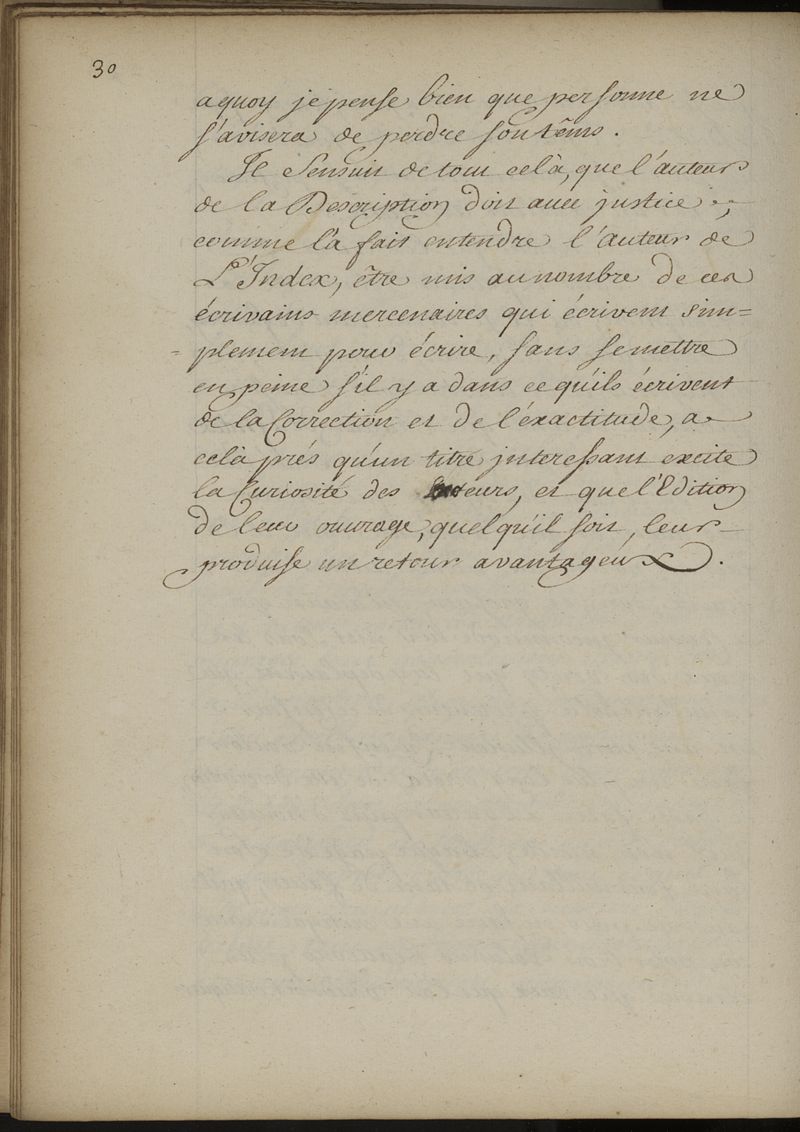 30
aquoy je pense bien que personne ne
s'avisera de perdre son têms.
Il Sensuit de tout celà, que l'auteur
de la Description doit avec justice
comme l'a fait entendre l'Auteur de
L'Index, être mis au nombre de ces
écrivains mercenaires qui écrivent sim=
=plement pour écrire, sans se mettre
en peine s'il y a dans ce qu'ils écrivent
de la Correction et de l'éxactitude, a
celà prés qu'un titre interessant excite
la Curiosité des teurs, et que l'Edition
de leur ouvrage, quelqu'il soit, leur
produise un retour avantageux.